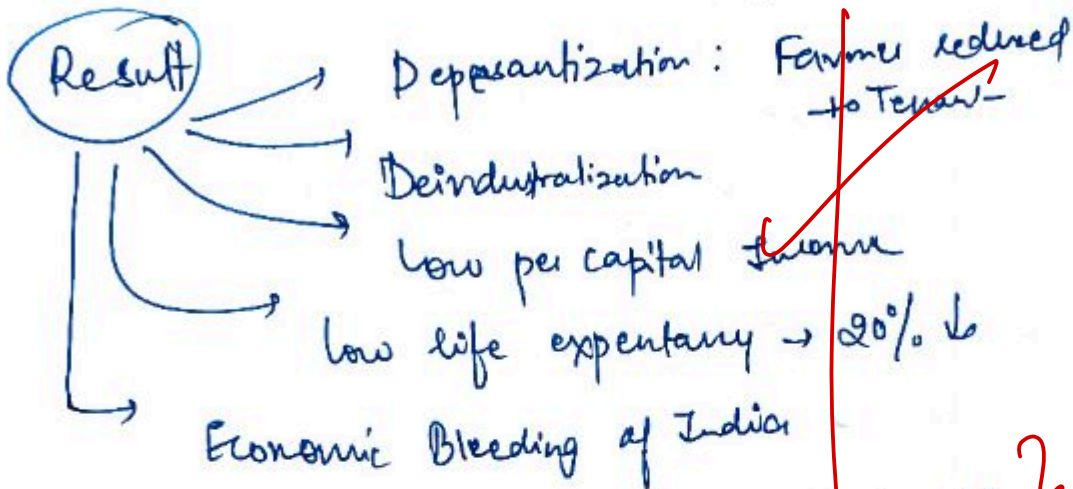 Result
Depesantization : Farmer reduced
to Tenant
Deindustralization
Low per capital Income
low life expentany → 20% ↓
Economic Bleeding of India
2